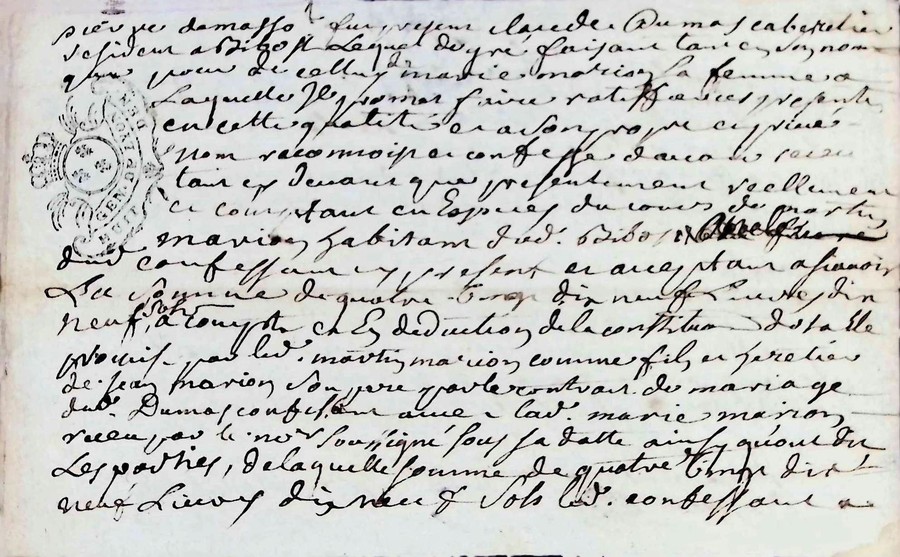 pierre damasso fut present claude Dumas cabaretier
resident a Ribo Lequel de gré faisant tant en son nom
que pour de celluy de marie marion sa femme a
Laquelle Il promet faire ratiffier ces presentes
en cette qualité et a son propre et privé
nom reconnoist et confesse d'avoir receu
tant cy devant que presentement reellement
et comptant en Especes du cours de martin
marion habitant dud. Ribo
dud. confessant cy present et acceptant a sçavoir
La somme de quatre vingt dix neuf Livres dix
neuf sols a compte et En deduction de la constitution dotalle
promise par led. martin marion comme fils et heretier
de Jean marion son pere par le contrat de mariage
dud. Dumas confessant avec lad. marie marion
receu par le no.re soussigné sous sa datte ainsy qu'ont dit
Les parties, de laquelle somme de quatre vingt dix
neuf Livres dix neuf sols led. confessant a
GEN DE RIOM
HUIT DEN